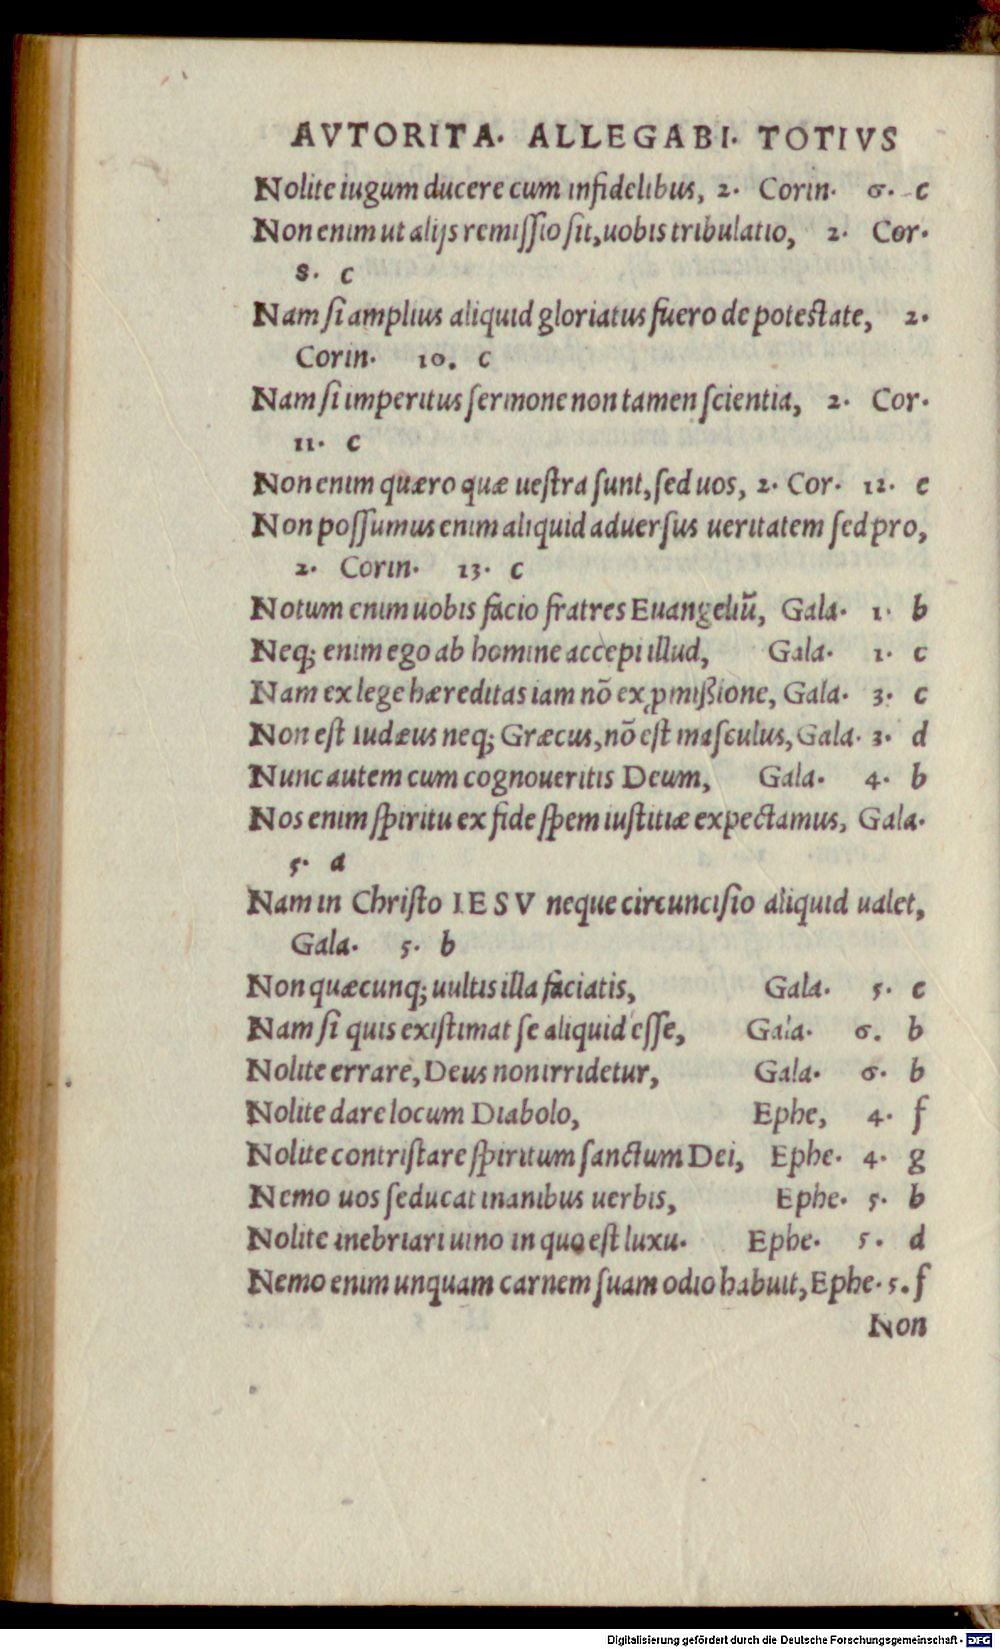 AVTORITA. ALLEGABI. TOTIVS
Nolite iugum ducere cum infidelibus, 2. Corin. 6. c
Non enim ut alijs remiſſio ſit, uobis tribulatio, 2. Cor.
8. c
Nam ſi amplius aliquid gloriatus fuero de poteſtate, 2.
Corin. 10. c
Nam ſi imperitus ſermone non tamen ſcientia, 2. Cor.
11. c
Non enim quæro quæ ueſtra ſunt, ſed uos, 2. Cor. 12. e
Non poſſumus enim aliquid aduerſus ueritatem ſed pro,
2. Corin. 13. c
Notum enim uobis facio fratres Euangeliũ, Gala. 1. b
Neq; enim ego ab homine accepi illud, Gala. 1. c
Nam ex lege hæreditas iam nõ ex ꝓmißione, Gala. 3. c
Non eſt iudæus neq; Græcus, nõ eſt maſculus, Gala. 3. d
Nunc autem cum cognoueritis Deum, Gala. 4. b
Nos enim ſpiritu ex fide ſpem iuſtitiæ expectamus, Gala.
5. a
Nam in Chriſto IESV neque circunciſio aliquid ualet,
Gala. 5. b
Non quæcunq; uultis illa faciatis, Gala. 5. c
Nam ſi quis exiſtimat ſe aliquid eſſe, Gala. 6. b
Nolite errare, Deus non irridetur, Gala. 6. b
Nolite dare locum Diabolo, Ephe, 4. f
Nolite contriſtare ſpiritum ſanctum Dei, Ephe. 4. g
Nemo uos ſeducat inanibus uerbis, Ephe. 5. b
Nolite inebriari uino in quo eſt luxu. Ephe. 5. d
Nemo enim unquam carnem ſuam odio habuit, Ephe. 5. f
Non
Digitalisierung gefördert durch die Deutsche Forschungsgemeinschaft - DFG